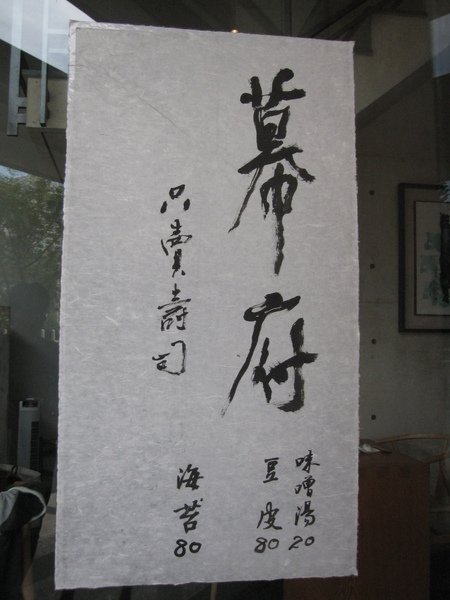 幕府
只賣壽司
味噌湯20
豆皮80
海苔80